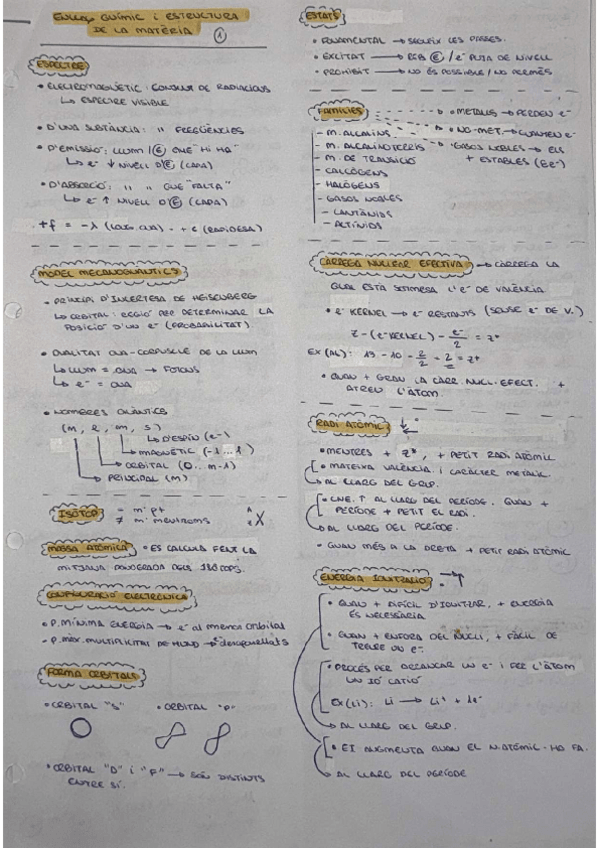 ENLLAÇ QUÍMIC I ESTRUCTURA
DE LA MATÈRIA ①
ESPECTRE
• ELECTROMAGNÈTIC: CONJUNT DE RADIACIONS
↳ ESPECTRE VISIBLE
• D'UNA SUBSTÀNCIA: " FREQÜÈNCIES
• D'EMISSIÓ: LLUM /Ⓔ QUE "HI HA"
↳ e⁻ ↓ NIVELL D'Ⓔ (CAPA)
• D'ABSORCIÓ: " " QUE "FALTA"
↳ e⁻ ↑ NIVELL D'Ⓔ (CAPA)
+f = -λ (LONG. ONA) - + c (RAPIDESA)
MODEL MECANOQUÀNTICS
• PRINCIPI D'INCERTESA DE HEISENBERG
↳ ORBITAL: REGIÓ PER DETERMINAR LA
POSICIÓ D'UN e⁻ (PROBABILITAT)
• QUALITAT ONA-CORPUSCLE DE LA LLUM
↳ LLUM = ONA → FOTONS
↳ e⁻ = ONA
• NOMBRES QUÀNTICS
(m, l, m, s)
↳ D'ESPÍN (e⁻)
↳ MAGNÈTIC (-1...1)
↳ ORBITAL (0... m-1)
↳ PRINCIPAL (m)
ISÒTOP = mº p+
≠ mº neutrons
A Z X
MASSA ATÒMICA • ES CALCULA FENT LA
MITJANA PONDERADA DELS ISÒTOPS.
CONFIGURACIÓ ELECTRÒNICA
• P. MÍNIMA ENERGIA → e⁻ al menor orbital
• P. MÀX. MULTIPLICITAT DE HUND → desaparellats
FORMA ORBITALS
• ORBITAL "S" • ORBITAL "P"
• ORBITAL "D" I "F" → SÓN DISTINTS
ENTRE SÍ.
ESTATS
• FONAMENTAL → SEGUEIX LES REGLES.
• EXCITAT → REB Ⓔ / e⁻ PUJA DE NIVELL
• PROHIBIT → NO ÉS POSSIBLE / NO PERMÈS
FAMÍLIES • METALLS → PERDEN e⁻
- M. ALCALINS • NO-MET. → GUANYEN e⁻
- M. ALCALINOTERRIS • GASOS NOBLES → ELS
- M. DE TRANSICIÓ + ESTABLES (8e⁻)
- CALCÒGENS
- HALÒGENS
- GASOS NOBLES
- LANTÀNIDS
- ACTÍNIDS
CÀRREGA NUCLEAR EFECTIVA → CÀRREGA LA
QUAL ESTÀ SOTMESA L'e⁻ DE VALÈNCIA
• e⁻ KERNEL → e⁻ RESTANTS (SENSE e⁻ DE V.)
Z - (e⁻ KERNEL) - e⁻/2 = Z*
EX (AL): 13 - 10 - 2/2 = 2 = Z*
• QUAN + GRAN LA CARR. NUCL. EFECT. +
ATREU L'ÀTOM.
RADI ATÒMIC
• MENTRES + Z*, + PETIT RADI ATÒMIC
• MATEIXA VALÈNCIA I CARÀCTER METÀL·LIC.
↳ AL LLARG DEL GRUP.
• CNE. ↑ AL LLARG DEL PERÍODE. QUAN +
PERÍODE + PETIT EL RADI.
↳ AL LLARG DEL PERÍODE.
• QUAN MÉS A LA DRETA + PETIT RADI ATÒMIC
ENERGIA IONITZACIÓ
• QUAN + DIFÍCIL D'IONITZAR, + ENERGIA
ÉS NECESSÀRIA
• QUAN + ENFORA DEL NUCLI, + FÀCIL DE
TREURE UN e⁻.
• PROCÉS PER ARRANCAR UN e⁻ I FER L'ÀTOM
UN IÓ CATIÓ
Ex (Li): Li → Li⁺ + 1e⁻
↳ AL LLARG DEL GRUP.
• EI AUGMENTA QUAN EL N. ATÒMIC HO FA.
↳ AL LLARG DEL PERÍODE